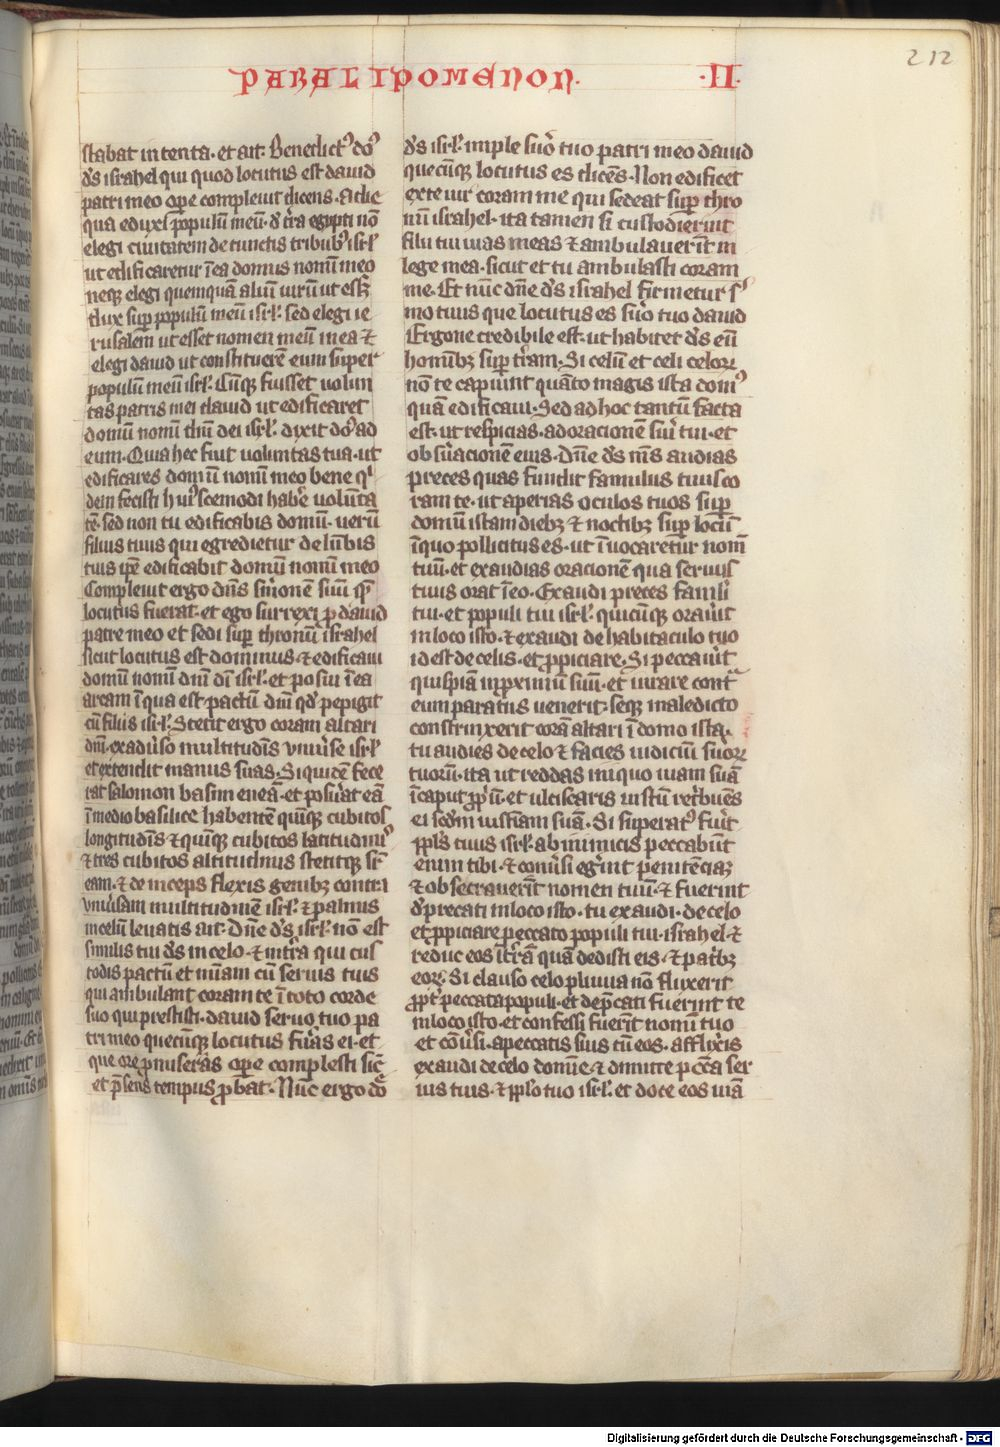 PARALIPOMENON. ·II·
212
stabat intenta. et ait. Benedict9 do9
d̄s israhel qui quod locutus est dauid
patri meo ope compleuit dicens. A die
qua eduxi populū meū. d̓ t̄ra egypti nō
elegi ciuitatem de cunctis tribub9 isr̄l
ut edificaretur ī ea domus nomī meo
neqꝫ elegi quemquā aliū uirū ut eēt
dux sup populū meū isr̄l. sed elegi ie
rusalem ut esset nomen meū in ea ⁊
elegi dauid ut constituerē eum super
populū meū isr̄l. Cūqꝫ fuisset uolun
tas patris mei dauid ut edificaret
domū nomī dn̄i dei isr̄l. dixit do9 ad
eum. Quia hec fuit uoluntas tua. ut
edificares domū nomī meo bene qͥ
dem fecisti huiscemodi habē uolūta
tē. sed non tu edificabis domū. uerū
filius tuus qui egredietur de lūbis
tuis ip̄e edificabit domū nomī meo
Compleuit ergo dn̄s s̓monē suū q̄
locutus fuerat. et ego surrexi p dauid
patre meo et sedi sup thronū israhel
sicut locutus est dominus. ⁊ edificaui
domū nomī dn̄i dī isr̄l. et posui ī ea
arcam ī qua est pactū dn̄i qd̓ pepigit
cū filiis isr̄l. Stetit ergo coram altari
dn̄i. ex adūso multitudīs vniūse isr̄l
et extendit manus suas. Siquidē fece
rat salomon basim eneā. et posūat eā
ī medio basilice habentē quīqꝫ cubitos
longitudīs ⁊ quīqꝫ cubitos latitudīs
⁊ tres cubitos altitudīnis stetitqꝫ sr̄
eam. ⁊ deinceps flexis genibꝫ contra
vniūsam multitudinē isr̄l. ⁊ palmis
in celū leuatis ait. Dn̄e d̄s isr̄l. nō est
similis tui d̄s in celo. ⁊ in t̄ra qui cus
todis pactū et m̄iam cū seruis tuis
qui ambulant coram te ī toto corde
suo qui prestitisti. dauid seruo tuo pa
tri meo quecūqꝫ locutus fūas ei. et
que ore pmiserās ope complesti sic̄
et p̄sens tempus pbat. Nūc ergo dō
d̄s isr̄l. imple s̓uo tuo patri meo dauid
quecūqꝫ locutus es dicēs. Non deficet
ex te uir coram me qui sedeat sup thro
nū israhel. ita tamen si custodierint
filii tui uias meas ⁊ ambulauerīt in
lege mea. sicut et tu ambulasti coram
me. Et nūc dn̄e d̄s israhel firmetur s̓
mo tuus que locutus es s̓uo tuo dauid
Ergone credibile est. ut habitet d̄s cū
hominibꝫ sup t̄ram. Si celū et celi celorꝝ
nō te capiunt quāto magis ista dom9
quā edificaui. Sed ad hoc tantū facta
est. ut respicias. ad oracionē s̓ui tui. et
obs̓uacionē eius. Dn̄e d̄s m̄s audias
preces quas fundit famulus tuus co
ram te. ut aperias oculos tuos sup
domū istam diebꝫ ⁊ noctibꝫ sup locū
ī quo pollicitus es. ut īuocaretur nom̄
tuū. et exaudias oracionē qua seruus
tuus orat ī eo. Exaudi preces famli̓
tui. et populi tui isr̄l. quicūqꝫ orau̓it
in loco isto. ⁊ exaudi de habitaculo tuo
id est de celis. et ppiciare. Si peccau̓it
quispiā in pximū suū. et iurare cont̄
eum paratus uenerit. seqꝫ maledicto
constrinxerit corā altari ī domo ista.
tu audies de celo ⁊ facies iudiciū s̓uorꝝ
tuorū. ita ut reddas iniquo uiam suā
ī caput ppriū. et ulciscaris iustū retbuēs
ei scdm iusticiam suā. Si superat9 fu̓it
ppl̓s tuus isr̄l. ab inimicis peccabūt
enim tibi. ⁊ conu̓si eg̓int penitēciaꝫ
⁊ obsecrauerīt nomen tuū. ⁊ fuerint
dp̄recati in loco isto. tu exaudi. de celo
et ppiciare peccato populi tui. israhel. ⁊
reduc eos ī t̄rā quā dedisti eis. ⁊ patbꝫ
eorꝝ. Si clauso celo pluuia nō fluxerit
ppt̓ peccata populi. et dep̄cati fuerint te
in loco isto. et confessi fuerīt nomī tuo
et cōu̓si. a peccatis suis cū eos. afflixis
exaudi de celo domīe. ⁊ dimitte pccāta ser
uis tuis. ⁊ ppl̓o tuo isr̄l. et doce eos uiā
Digitalisierung gefördert durch die Deutsche Forschungsgemeinschaft - DFG